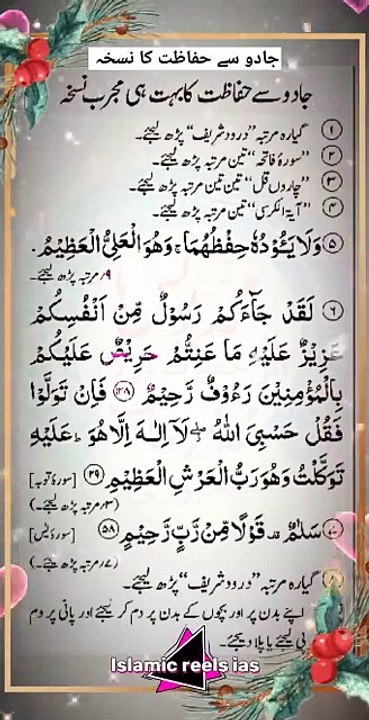 جادو سے حفاظت کا نسخہ
جادو سے حفاظت کا بہت ہی مجرب نسخہ
① گیارہ مرتبہ ”درود شریف“ پڑھ لیجئے۔
② ”سورۂ فاتحہ“ تین مرتبہ پڑھ لیجئے۔
③ ”چاروں قل“ تین تین مرتبہ پڑھ لیجئے۔
④ ”آیۃ الکرسی“ تین مرتبہ پڑھ لیجئے۔
⑤ وَلَا يَـُٔوْدُهٗ حِفْظُهُمَا ۚ وَهُوَ الْعَلِىُّ الْعَظِيْمُ.
۹/مرتبہ پڑھ لیجئے۔
⑥ لَقَدْ جَآءَكُمْ رَسُوْلٌ مِّنْ اَنْفُسِكُمْ
عَزِيْزٌ عَلَيْهِ مَا عَنِتُّمْ حَرِيْصٌ عَلَيْكُمْ
بِالْمُؤْمِنِيْنَ رَءُوْفٌ رَّحِيْمٌ ﴿۱۲۸﴾ فَاِنْ تَوَلَّوْا
فَقُلْ حَسْبِىَ اللّٰهُ ۖ لَآ اِلٰهَ اِلَّا هُوَ ؕ عَلَيْهِ
تَوَكَّلْتُ وَهُوَ رَبُّ الْعَرْشِ الْعَظِيْمِ ﴿۲۹﴾ [سورۂ توبہ]
(۳/مرتبہ پڑھ لیجئے۔)
سَلٰمٌ ۟ قَوْلًا مِّنْ رَّبٍّ رَّحِيْمٍ ﴿۵۸﴾ [سورۂ یٰس]
(۷/مرتبہ پڑھ لیجئے۔)
گیارہ مرتبہ ”درود شریف“ پڑھ لیجئے۔
اپنے بدن پر اور بچوں کے بدن پر دم کر لیجئے اور پانی پر دم
پی لیجئے یا پلا دیجئے۔
Islamic reels ias